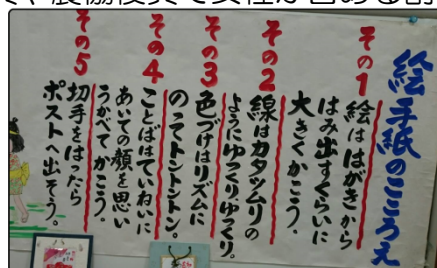 絵手紙のこころえ
その1
絵ははがきから
はみ出すくらいに
大きくかこう。
その2
線はカタツムリの
ようにゆっくりゆっくり。
その3
色づけはリズムに
のってトントントン。
その4
ことばはていねいに
あいての顔を思い
うかべてかこう。
その5
切手をはったら
ポストへ出そう。